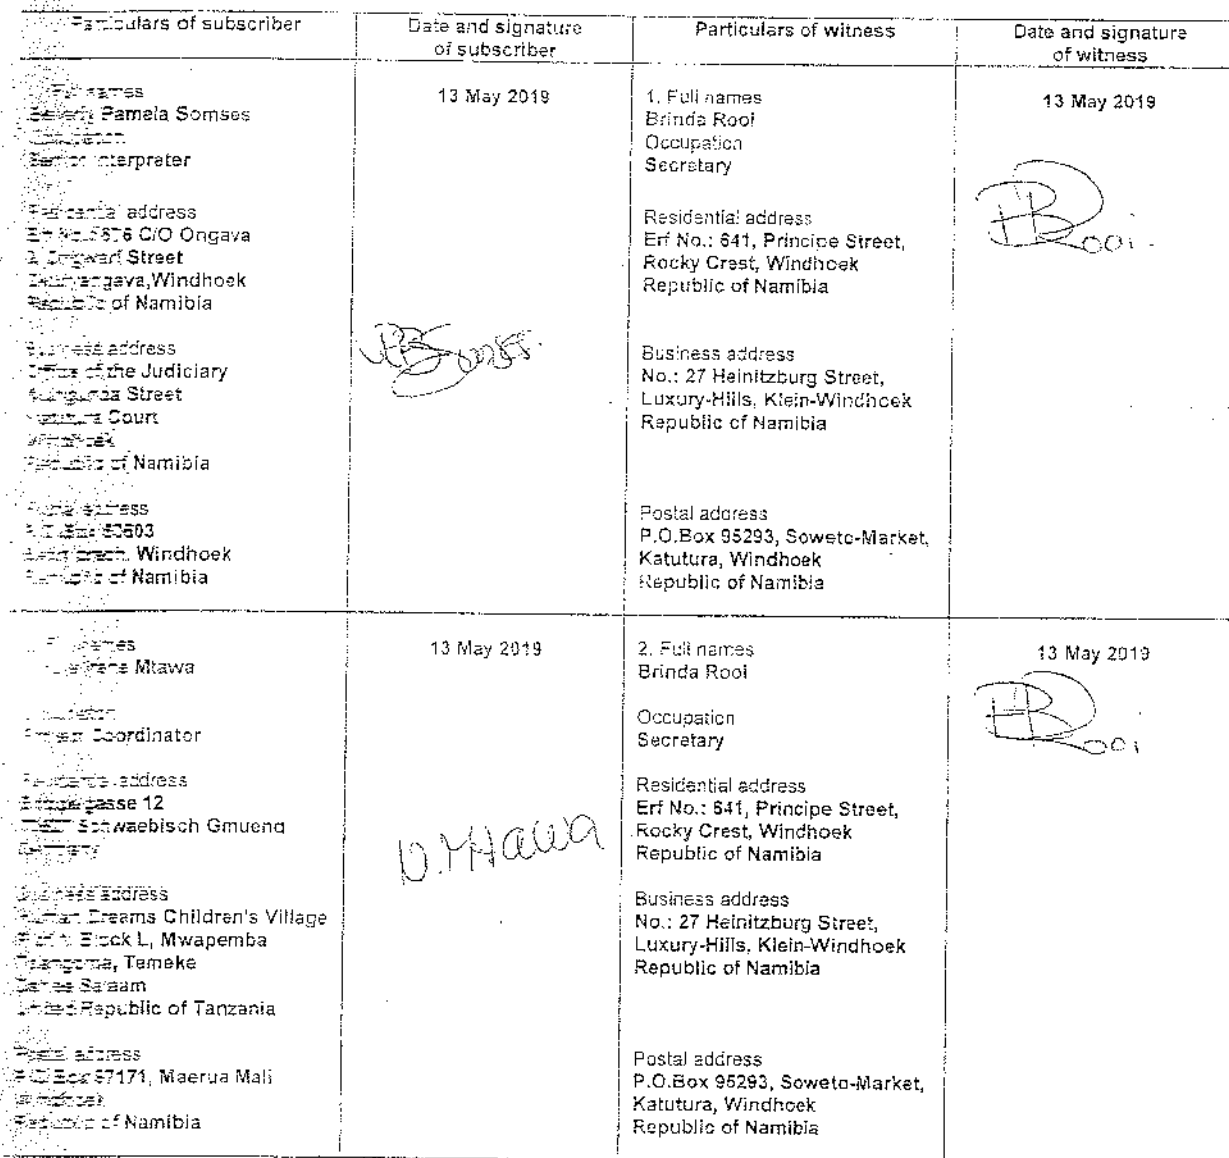 Particulars of subscriber
Date and signature
of subscriber
Particulars of witness
Date and signature
of witness
Full names
Pamela Somses
Occupation
Senior Interpreter
Residential address
Erf No. 5676 C/O Ongava
& Street
Windhoek
Republic of Namibia
Business address
Office of the Judiciary
Street
Katutura Court
Windhoek
Republic of Namibia
Postal address
P.O.Box
Windhoek
Republic of Namibia
13 May 2019
1. Full names
Brinda Rooi
Occupation
Secretary
Residential address
Erf No.: 641, Principe Street,
Rocky Crest, Windhoek
Republic of Namibia
Business address
No.: 27 Heinitzburg Street,
Luxury-Hills, Klein-Windhoek
Republic of Namibia
Postal address
P.O.Box 95293, Soweto-Market,
Katutura, Windhoek
Republic of Namibia
13 May 2019
Rooi
Full names
Mtawa
Occupation
Project Coordinator
Residential address
12
Schwaebisch Gmuend
Germany
Business address
Human Dreams Children's Village
Block L, Mwapemba
Temeke
Dar es Salaam
United Republic of Tanzania
Postal address
P.O.Box 97171, Maerua Mall
Windhoek
Republic of Namibia
13 May 2019
Mtawa
2. Full names
Brinda Rooi
Occupation
Secretary
Residential address
Erf No.: 641, Principe Street,
Rocky Crest, Windhoek
Republic of Namibia
Business address
No.: 27 Heinitzburg Street,
Luxury-Hills, Klein-Windhoek
Republic of Namibia
Postal address
P.O.Box 95293, Soweto-Market,
Katutura, Windhoek
Republic of Namibia
13 May 2019
Rooi